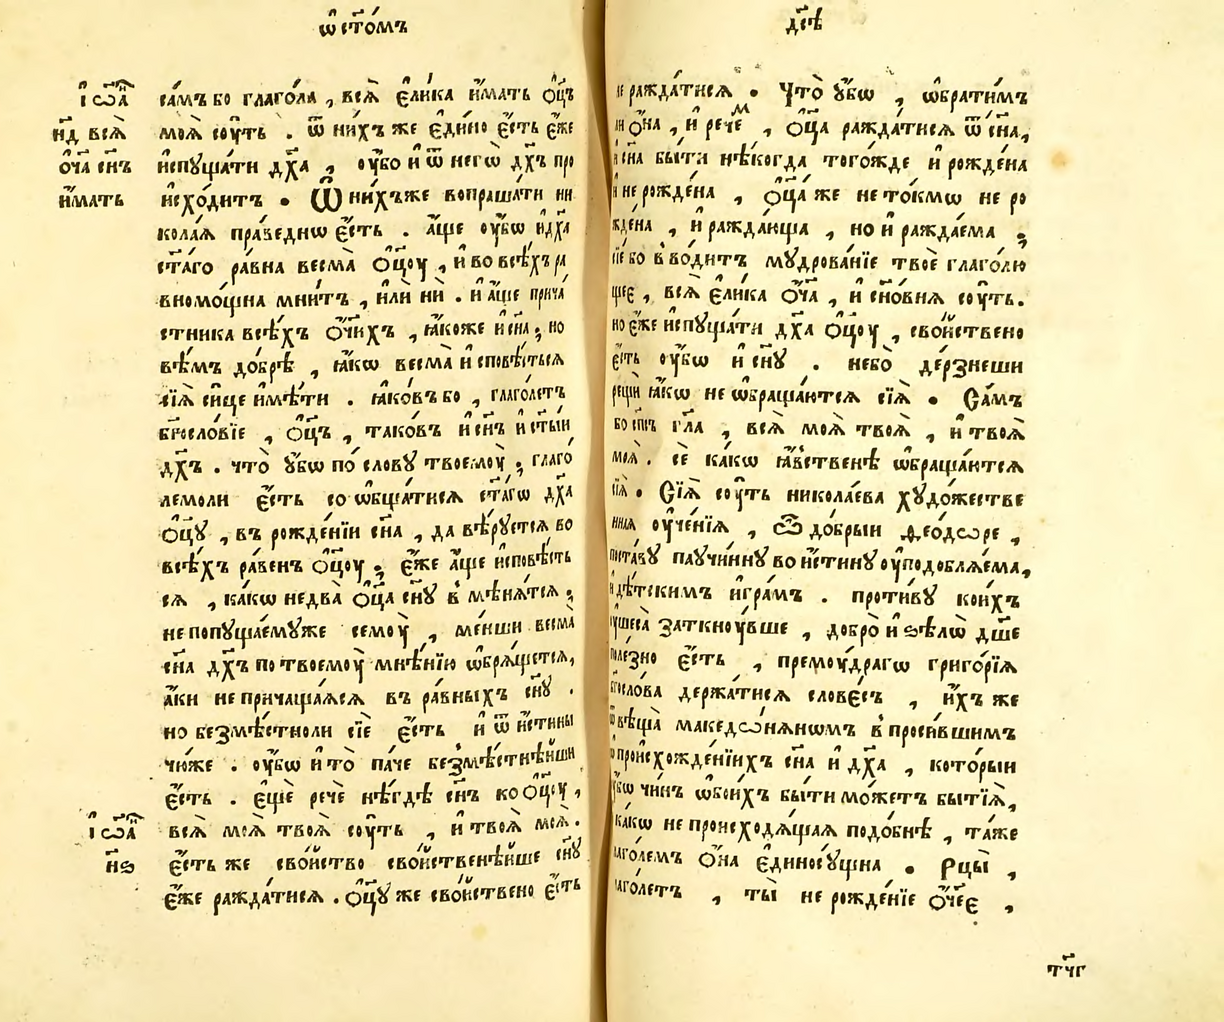 ѡ҆ ст҃о́мъ
і҆ѡа҃
н҃д всѧ̀
ѻ҆́ч҃а сн҃ъ
и҆́мать
са́мъ бо глаго́лѧ , всѧ̀ є҆ли́ка и҆́мать ѻ҆ц҃ъ
моѧ̀ сꙋ́ть . ѿ ни́хъ же є҆ди́но є҆́сть є҆́же
и҆спꙋща́ти дх҃а , оу҆́бо и҆ ѿ негѡ̀ дх҃ъ про
и҆схо́дитъ . Ѿ ни́хъже вопраша́ти ни
кола́ѧ пра́веднѡ є҆́сть . а҆́ще оу҆́бѡ и҆ дх҃а
ст҃а́го ра́вна весма̀ ѻ҆ц҃оу , и҆ во всѣ́хъ ра
вномо́щна мни́тъ , и҆лѝ нѝ . и҆ а҆́ще прича́
стника всѣ́хъ ѻ҆́ч҃ихъ , ꙗ҆́коже и҆ сн҃а ; но
вѣ́мъ до́брѣ , ꙗ҆́кѡ весма̀ и҆сповѣ́стьсѧ
сїѧ̀ си́це и҆мѣ́ти . ꙗ҆ко́въ бо , глаго́летъ
бг҃осло́вїе , ѻ҆ц҃ъ , тако́въ и҆ сн҃ъ и҆ ст҃ы́и
дх҃ъ . что̀ ᲂу҆́бѡ по сло́вꙋ твоемꙋ̀ ; глаго́
лемоли є҆́сть со ѡ҆бща́тисѧ ст҃а́гѡ дх҃а
ѻ҆ц҃ꙋ , въ рожде́нїи сн҃а , да вѣ́рꙋетсѧ во
всѣ́хъ ра́венъ ѻ҆ц҃оу ; є҆́же а҆́ще и҆сповѣ́сть
сѧ , ка́кѡ не два̀ ѻ҆ц҃а сн҃ꙋ в мѣнѧ́тсѧ ;
не попꙋща́емꙋже семоꙋ̀ , ме́нши весма̀
сн҃а дх҃ъ по твоемоꙋ̀ мнѣ́нїю ѡ҆брѧ́щетсѧ ,
а҆́ки не причаща́ѧсѧ въ ра́вныхъ сн҃ꙋ .
но безмѣ́стноли сїѐ є҆́сть и҆ ѿ и҆́стины
чю́же . оу҆́бѡ и҆ то̀ па́че безмѣ́стнѣйши
є҆́сть . є҆щѐ речѐ нѣ́гдѣ сн҃ъ ко ѻ҆ц҃оу ,
і҆ѡа҃
н҃ѕ
всѧ̀ моѧ̀ твоѧ̀ соу́ть , и҆ твоѧ̀ моѧ̀ .
є҆́сть же сво́йство сво́йственѣйше сн҃ꙋ
є҆́же ражда́тисѧ . ѻ҆ц҃ꙋ же сво́йствено є҆́сть
дс҃ѣ
не ражда́тисѧ . Что̀ ᲂу҆́бѡ , ѡ҆брати́мъ
ли ѻ҆́на , и҆ рече́м , ѻ҆ц҃а ражда́тисѧ ѿ сн҃а ,
и҆ сн҃а бы́ти нѣ́когда того́жде и҆ рожде́на
и҆ не рожде́на , ѻ҆ц҃а же не то́кмѡ не ро
жде́на , и҆ ражда́юща , но и҆ ражда́ема ;
сїе́ бо в во́дитъ мꙋдрова́нїе твоѐ глаго́лю
щее , всѧ̀ є҆ли́ка ѻ҆́ч҃а , и҆ сн҃о́внѧ соу́ть .
но є҆́же и҆спꙋща́ти дх҃а ѻ҆ц҃оу , сво́йствено
є҆́сть оу҆́бѡ и҆ сн҃ꙋ . небо̀ де́рзнеши
рещѝ ꙗ҆́кѡ не ѡ҆браща́ютсѧ сїѧ̀ . Са́мъ
бо сп҃съ гл҃а , всѧ̀ моѧ̀ твоѧ̀ , и҆ твоѧ̀
моѧ̀ . сѐ ка́кѡ ꙗ҆́вственѣ ѡ҆браща́ютсѧ
сїѧ̀ . Сїѧ̀ соу́ть никола́ева хꙋдо́жестве
ннаѧ оу҆че́нїѧ , Ѽ до́брыи Ѳео́дѡре ,
поста́вꙋ паꙋчи́ннꙋ во и҆́стинꙋ оу҆подоблѧ́ема ,
и҆ дѣ́тскимъ и҆гра́мъ . проти́вꙋ кои́хъ
оу҆шеса̀ заткнꙋ́вше , добро̀ и҆ ѕѣлѡ̀ дш҃е
поле́зно є҆́сть , премоу́драгѡ григо́рїѧ
бг҃осло́ва держа́тисѧ слове́съ , и҆́хъ же
ѿвѣща̀ македѡнѧ́нѡмъ в проси́вшимъ
ѡ҆ происхожде́нїихъ сн҃а и҆ дх҃а , кото́рыи
ᲂу҆́бѡ чи́нъ ѡ҆бои́хъ бы́ти мо́жетъ бытїѧ̀ ,
ка́кѡ не происходѧ́щаѧ подо́бнѣ , та́же
глаго́лемъ ѻ҆́на є҆диносꙋ́щна . Рцы̀ ,
глаго́летъ , ты̀ не рожде́нїе ѻ҆́ч҃ее ,
тч҃г